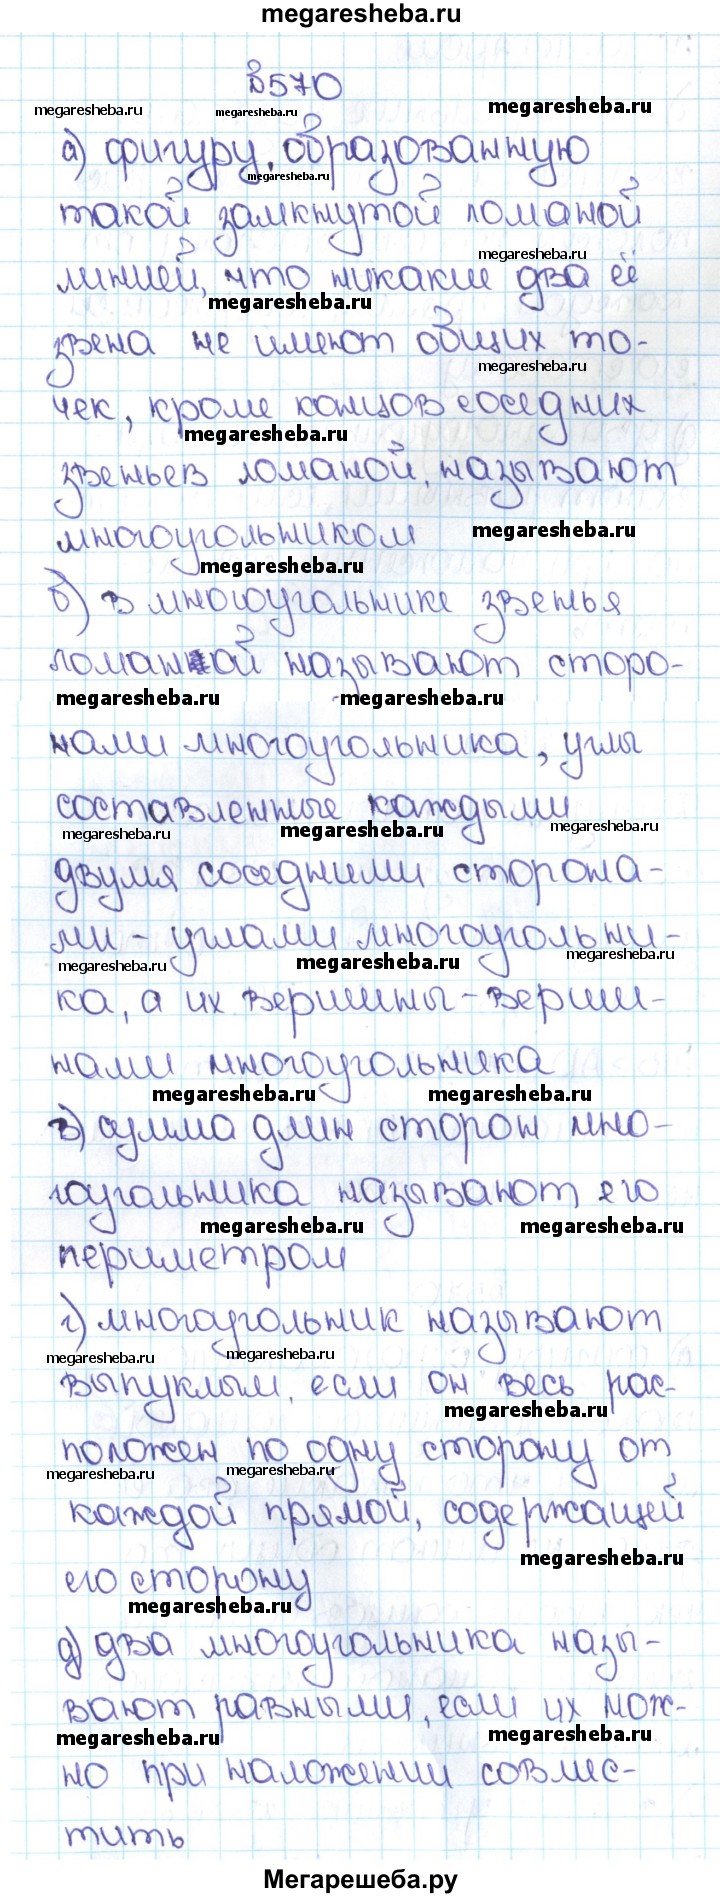 megaresheba.ru
№570
megaresheba.ru megaresheba.ru megaresheba.ru
а) фигуру, образованную
megaresheba.ru
такой замкнутой ломаной
megaresheba.ru
линией, что никакие два её
megaresheba.ru
звена не имеют общих то-
megaresheba.ru
чек, кроме концов соседних
megaresheba.ru
звеньев ломаной, называют
многоугольником
megaresheba.ru
megaresheba.ru
б) в многоугольнике звенья
ломаной называют сторо-
megaresheba.ru megaresheba.ru
нами многоугольника, углы
составленные каждыми
megaresheba.ru megaresheba.ru megaresheba.ru
двумя соседними сторона-
ми - углами многоугольни-
megaresheba.ru megaresheba.ru megaresheba.ru
ка, а их вершины - верши-
нами многоугольника
megaresheba.ru megaresheba.ru
в) сумма длин сторон мно-
гоугольника называют его
megaresheba.ru megaresheba.ru
периметром
г) многоугольник называют
megaresheba.ru megaresheba.ru
выпуклым, если он весь рас-
megaresheba.ru
положен по одну сторону от
megaresheba.ru megaresheba.ru
каждой прямой, содержащей
megaresheba.ru
его сторону
megaresheba.ru
д) два многоугольника назы-
вают равными, если их мож-
megaresheba.ru megaresheba.ru
но при наложении совмес-
тить
Мегарешеба.ру